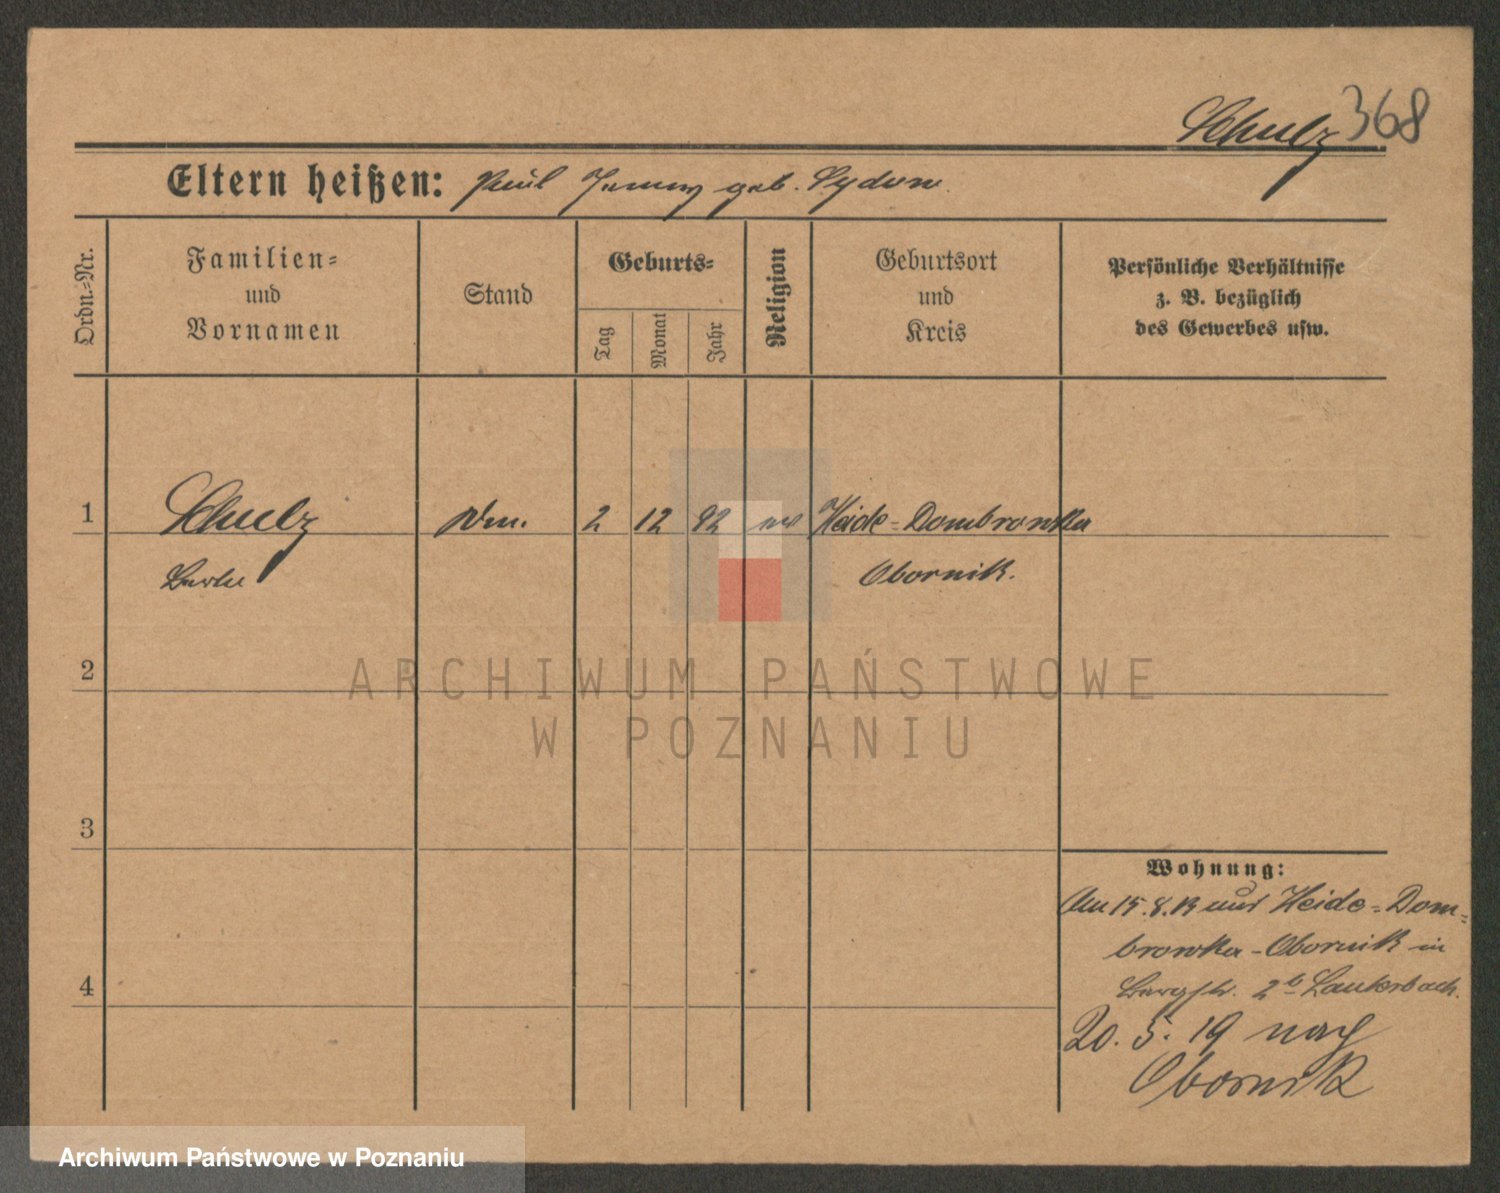 Schulz 368
Eltern heißen: Paul Jenny geb. Sydow.
Ordn.-Nr.
Familien-
und
Vornamen
Stand
Geburts-
Tag
Monat
Jahr
Religion
Geburtsort
und
Kreis
Persönliche Verhältnisse
z. B. bezüglich
des Gewerbes usw.
1
Schulz
2 12 92 ev Heide-Dombrowka
Obornik.
2
ARCHIWUM PAŃSTWOWE
W POZNANIU
3
Wohnung:
Am 15.8.13 aus Heide-Dom-
browka-Obornik in
Bergstr. 2b Lauterbach.
4
20. 5. 19 nach
Obornik
Archiwum Państwowe w Poznaniu